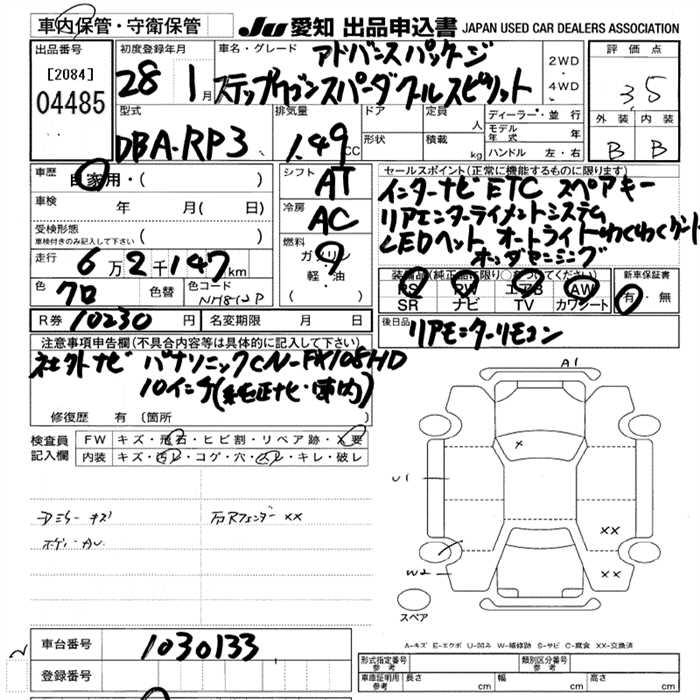 車内保管・守衛保管
JU 愛知 出品申込書 JAPAN USED CAR DEALERS ASSOCIATION
出品番号
[2084]
04485
初度登録年月
28 1月
車名・グレード
アドバースパッケージ
ステップワゴンスパーダクールスピリット
2WD
・
4WD
評価点
3.5
外装 内装
B B
型式
DBA-RP3
排気量
1.49 CC
ドア
形状
定員 人
積載 kg
ディーラー・並行
モデル年式 年
ハンドル 左・右
車歴
自家用・( )
車検 年 月( 日)
受検形態
車検付きのみ記入して下さい ( )
走行 6万2千147km
色 クロ 色替 色コード
R券 10230円 名変期限 月 日
シフト AT
冷房 AC
燃料
ガソリン
軽・油
( )
セールスポイント(正常に機能するものに限ります)
インターナビ ETC スペアキー
リアエンターテイメントシステム
LEDヘッド オートライト わくわくゲート
ホンダセンシング
装備品(純正品に限り○をつけてください)
PS PW エアB AW
SR ナビ TV カワシート
新車保証書
有・無
後日品 リアモニターリモコン
注意事項申告欄(不具合内容等は具体的に記入して下さい)
社外ナビ パナソニックCN-FX108HD
10インチ(純正ナビ・車内)
修復歴 有(箇所 )
検査員
記入欄
FW キズ・飛石・ヒビ割・リペア跡・X要
内装 キズ・汚レ・コゲ・穴・スレ・キレ・破レ
A1
U1
W2
×
××
××
スペア
A-キズ E-エクボ U-凹み W-補修跡 S-サビ C-腐食 XX-交換済
車台番号 1030133
登録番号
形式指定番号 参考
類別区分番号 参考
車庫証明用 参考 長さ cm 幅 cm 高さ cm